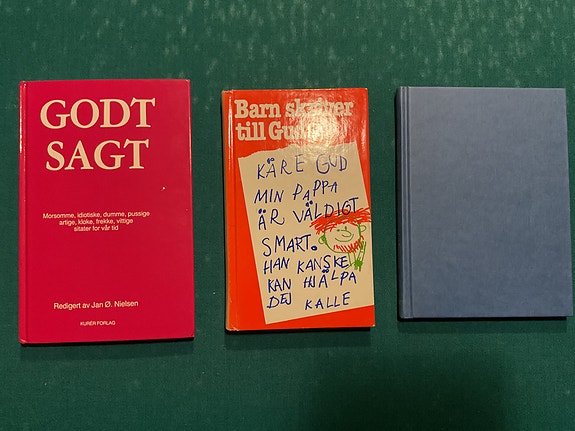 GODT
SAGT
Morsomme, idiotiske, dumme, pussige
artige, kloke, frekke, vittige
sitater for vår tid
Redigert av Jan Ø. Nielsen
KURÉR FORLAG
Barn skriver
till Gud
KÄRE GUD
MIN PAPPA
ÄR VÄLDIGT
SMART.
HAN KANSKE
KAN HJÄLPA
DEJ KALLE